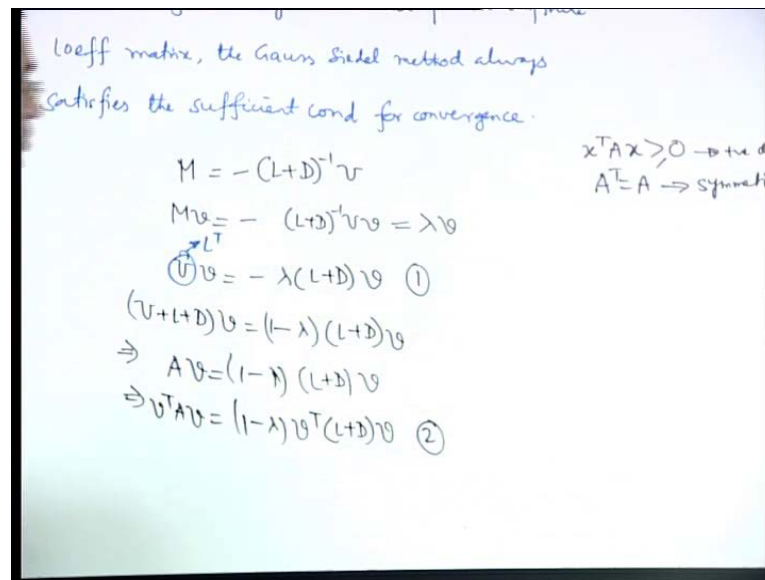 Coeff matrix, the Gauss Siedel method always
satisfies the sufficient cond for convergence.
x^T A x ≥ 0 → +ve d
A^T = A → symmeti
M = - (L+D)^{-1} U
Mv = - (L+D)^{-1} U v = λ v
L^T
U v = - λ (L+D) v ①
(U+L+D) v = (1-λ) (L+D) v
⇒ A v = (1-λ) (L+D) v
⇒ v^T A v = (1-λ) v^T (L+D) v ②